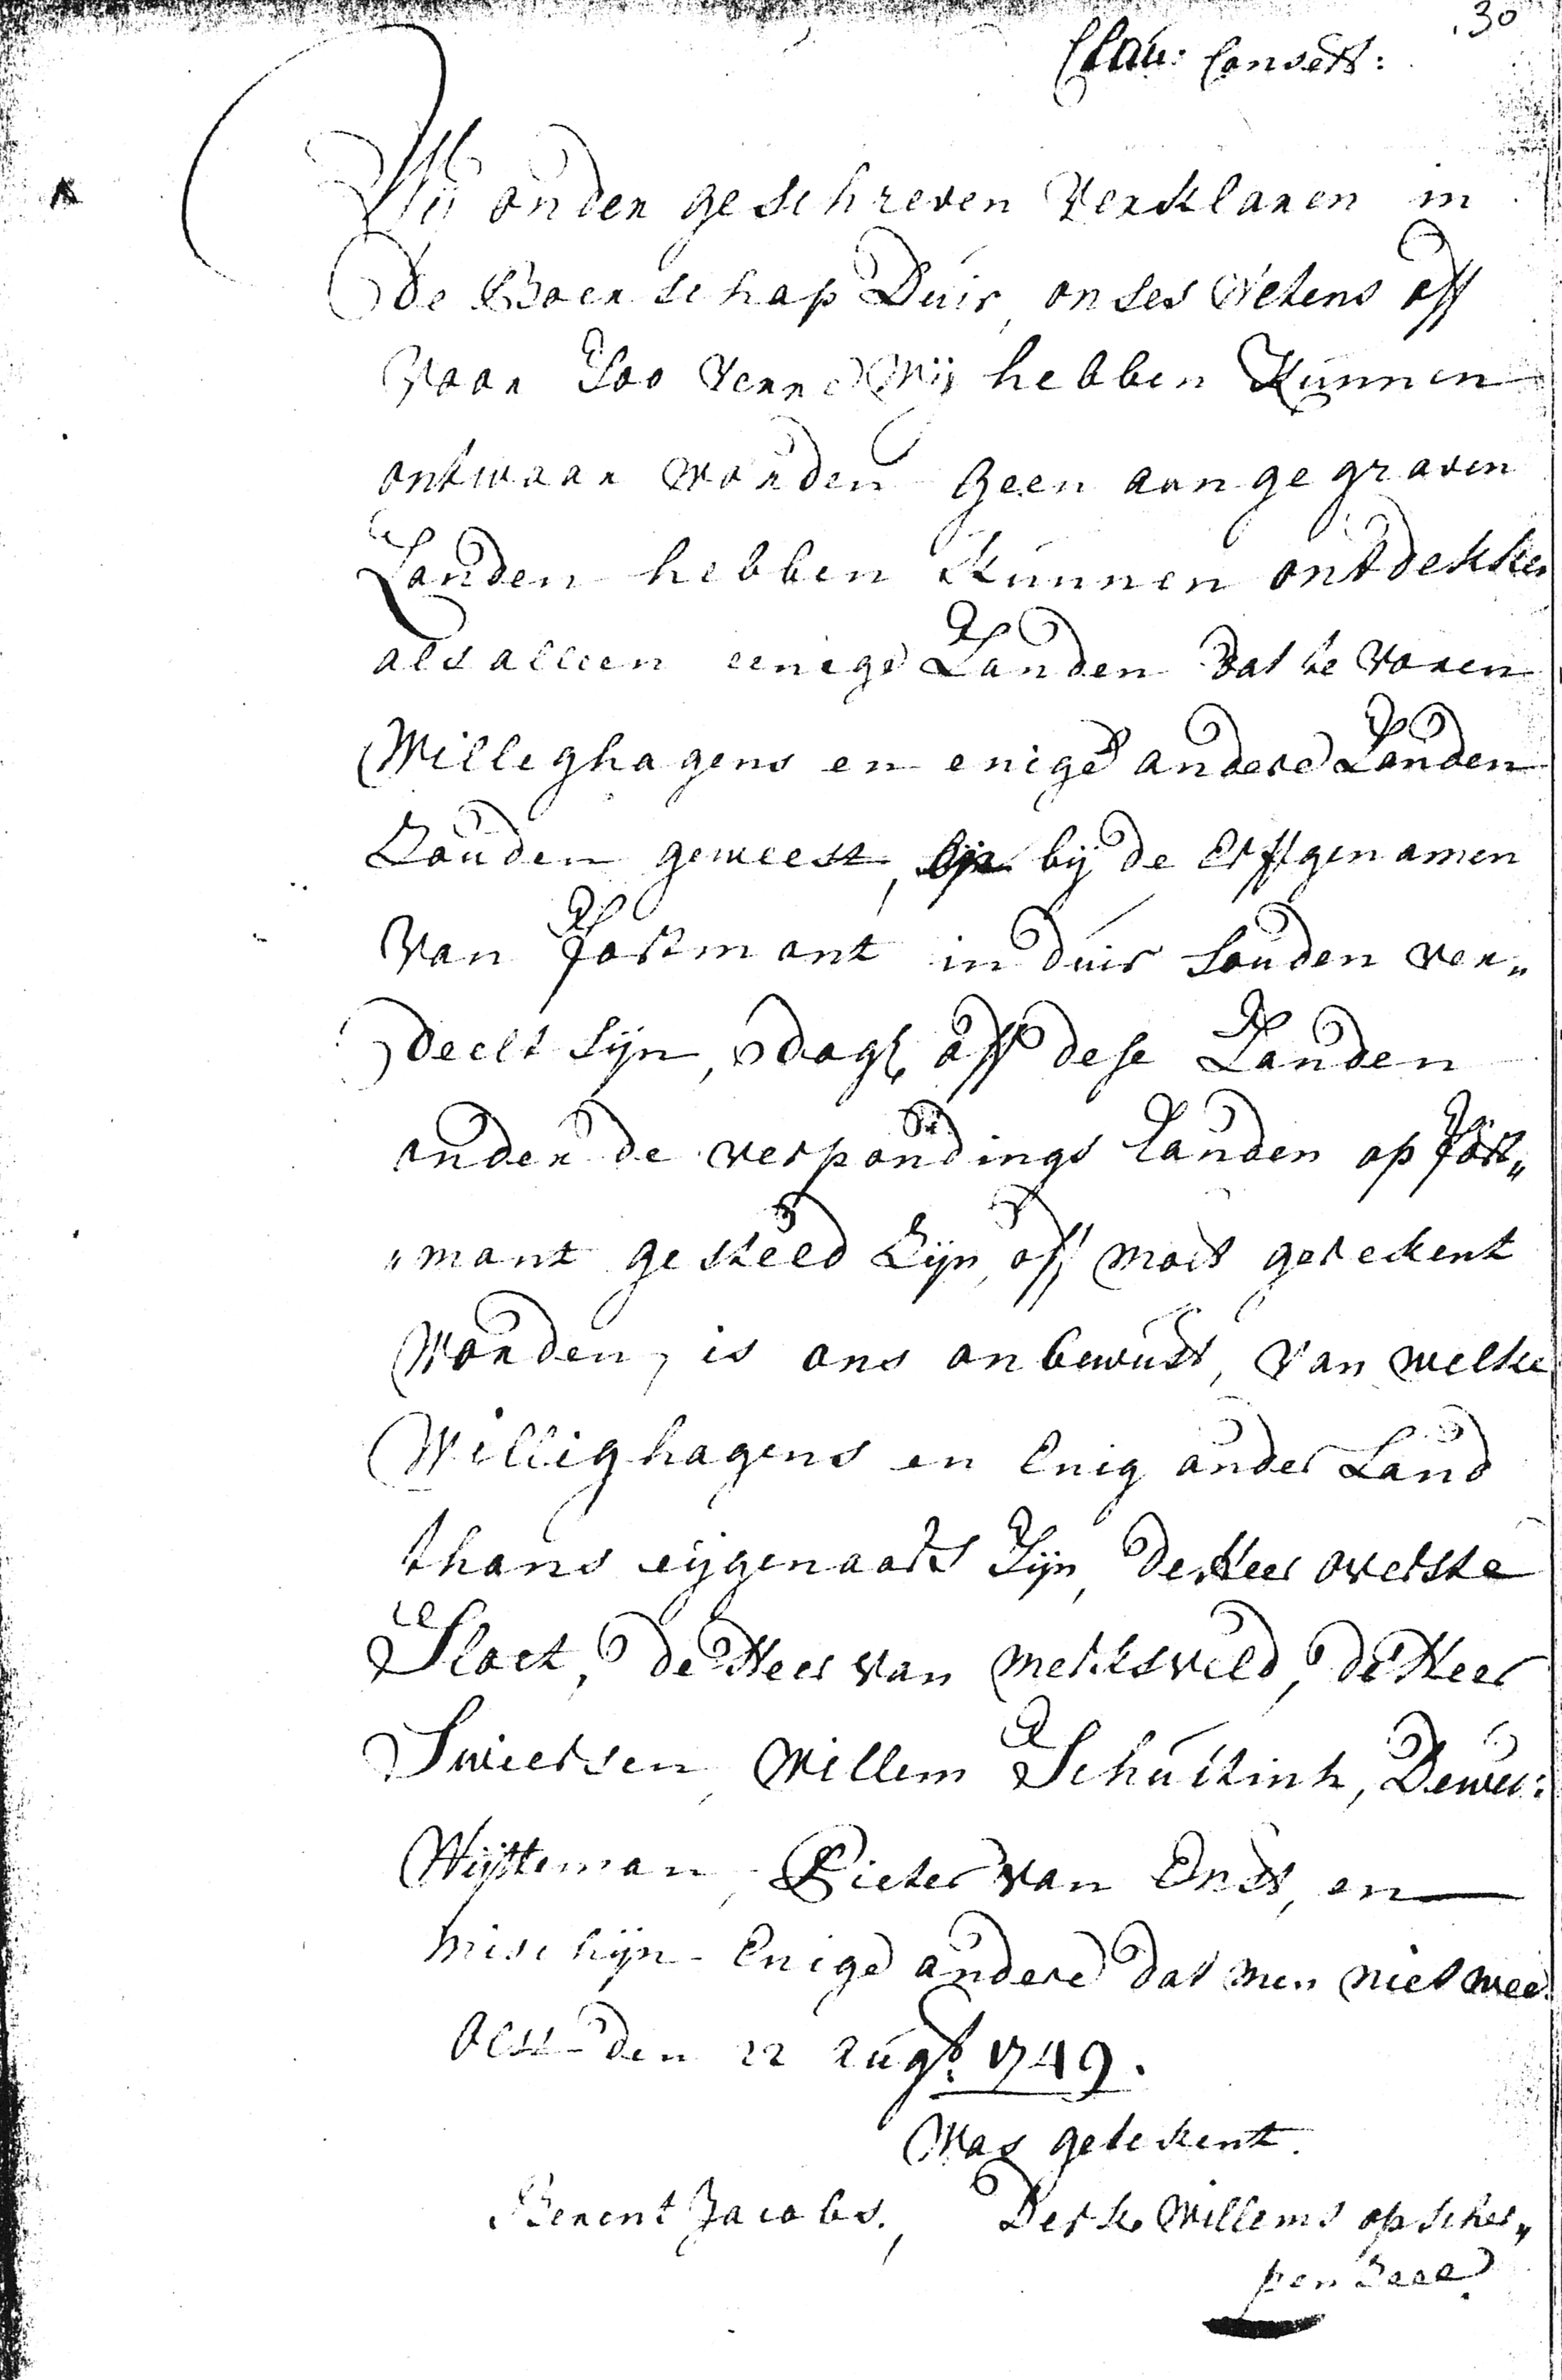 30
Clau: Consett:
Wij onder geschreven Verklaren in
de Boerschap Duir, onses Wetens off
voor soo verre Wij hebben Kunnen
ontwaar worden geen aangegraven
Landen hebben Kunnen ontdekken
als alleen eenige Landen dat te voren
Willeghagens en enige andere Landen
Zouden geweest, bij de Erffgenamen
van Jostmant in duir souden ver„
deelt sijn, dog off dese Landen
onder de verpondings Landen op Jost„
„mant gesteld Zijn, off moet gerekent
Worden, is ons onbewust, van welke
Willighagens en Enig ander Land
thans eijgenaars Sijn, de Heer overste
Sloet, de Heer van Merksveld, de Heer
Swiersen, Willem Schultink, Dewer:
Wijtteman, Pieter van Enst, en
mischijn Enige andere dat men niet weet
Olst den 22 Augt: 1749.
Was getekent.
Berent Jacobs., Derk Willems op scher„
pen Zeel.